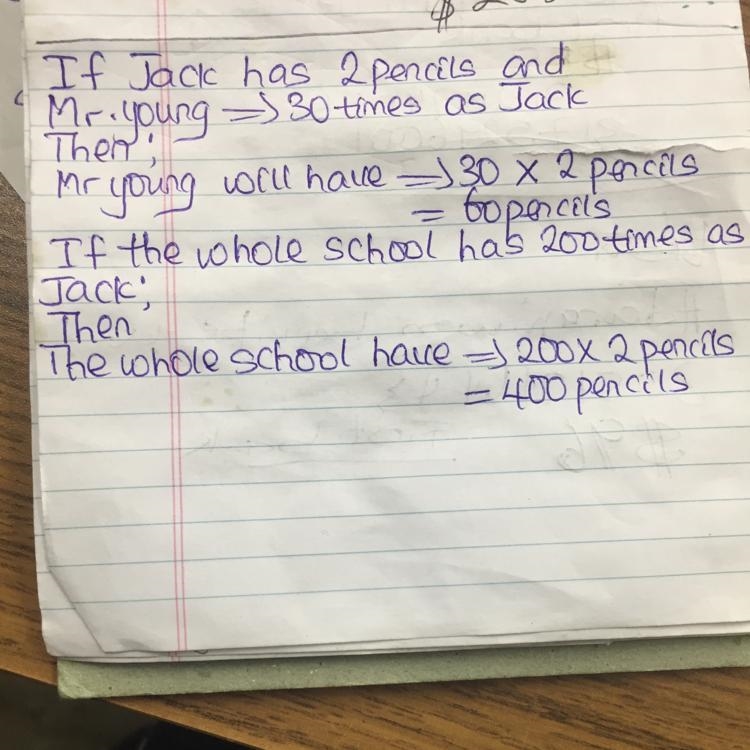 If Jack has 2 pencils and
Mr. young => 30 times as Jack
Then;
Mr young will have => 30 x 2 pencils
= 60 pencils
If the whole school has 200 times as
Jack;
Then
The whole school have => 200 x 2 pencils
= 400 pencils